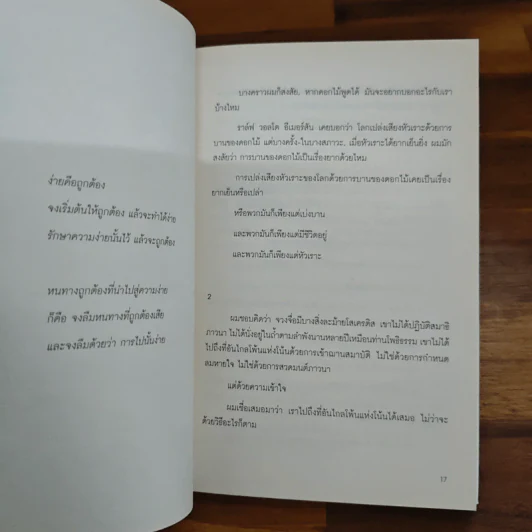 ง่ายคือถูกต้อง
จงเริ่มต้นให้ถูกต้อง แล้วจะทำได้ง่าย
รักษาความง่ายนั้นไว้ แล้วจะถูกต้อง
หนทางถูกต้องที่นำไปสู่ความง่าย
ก็คือ จงลืมหนทางที่ถูกต้องเสีย
และจงลืมด้วยว่า การไปนั้นง่าย
บางคราวผมก็สงสัย, หากดอกไม้พูดได้ มันจะอยากบอกอะไรกับเรา
บ้างไหม
ราล์ฟ วอลโด อีเมอร์สัน เคยบอกว่า โลกเปล่งเสียงหัวเราะด้วยการ
บานของดอกไม้ แต่บางครั้ง-ในบางสภาวะ, เมื่อหัวเราะได้ยากเย็นยิ่ง ผมมัก
สงสัยว่า การบานของดอกไม้เป็นเรื่องยากด้วยไหม
การเปล่งเสียงหัวเราะของโลกด้วยการบานของดอกไม้เคยเป็นเรื่อง
ยากเย็นหรือเปล่า
หรือพวกมันก็เพียงแต่เบ่งบาน
และพวกมันก็เพียงแต่มีชีวิตอยู่
และพวกมันก็เพียงแต่หัวเราะ
2
ผมชอบคิดว่า จวงจื่อมีบางสิ่งละม้ายโสเครติส เขาไม่ได้ปฏิบัติสมาธิ
ภาวนา ไม่ได้นั่งอยู่ในถ้ำตามลำพังนานหลายปีเหมือนท่านโพธิธรรม เขาไม่ได้
ไปถึงที่อันไกลโพ้นแห่งโน้นด้วยการเข้าฌานสมาบัติ ไม่ใช่ด้วยการกำหนด
ลมหายใจ ไม่ใช่ด้วยการสวดมนต์ภาวนา
แต่ด้วยความเข้าใจ
ผมเชื่อเสมอมาว่า เราไปถึงที่อันไกลโพ้นแห่งโน้นได้เสมอ ไม่ว่าจะ
ด้วยวิธีอะไรก็ตาม
17